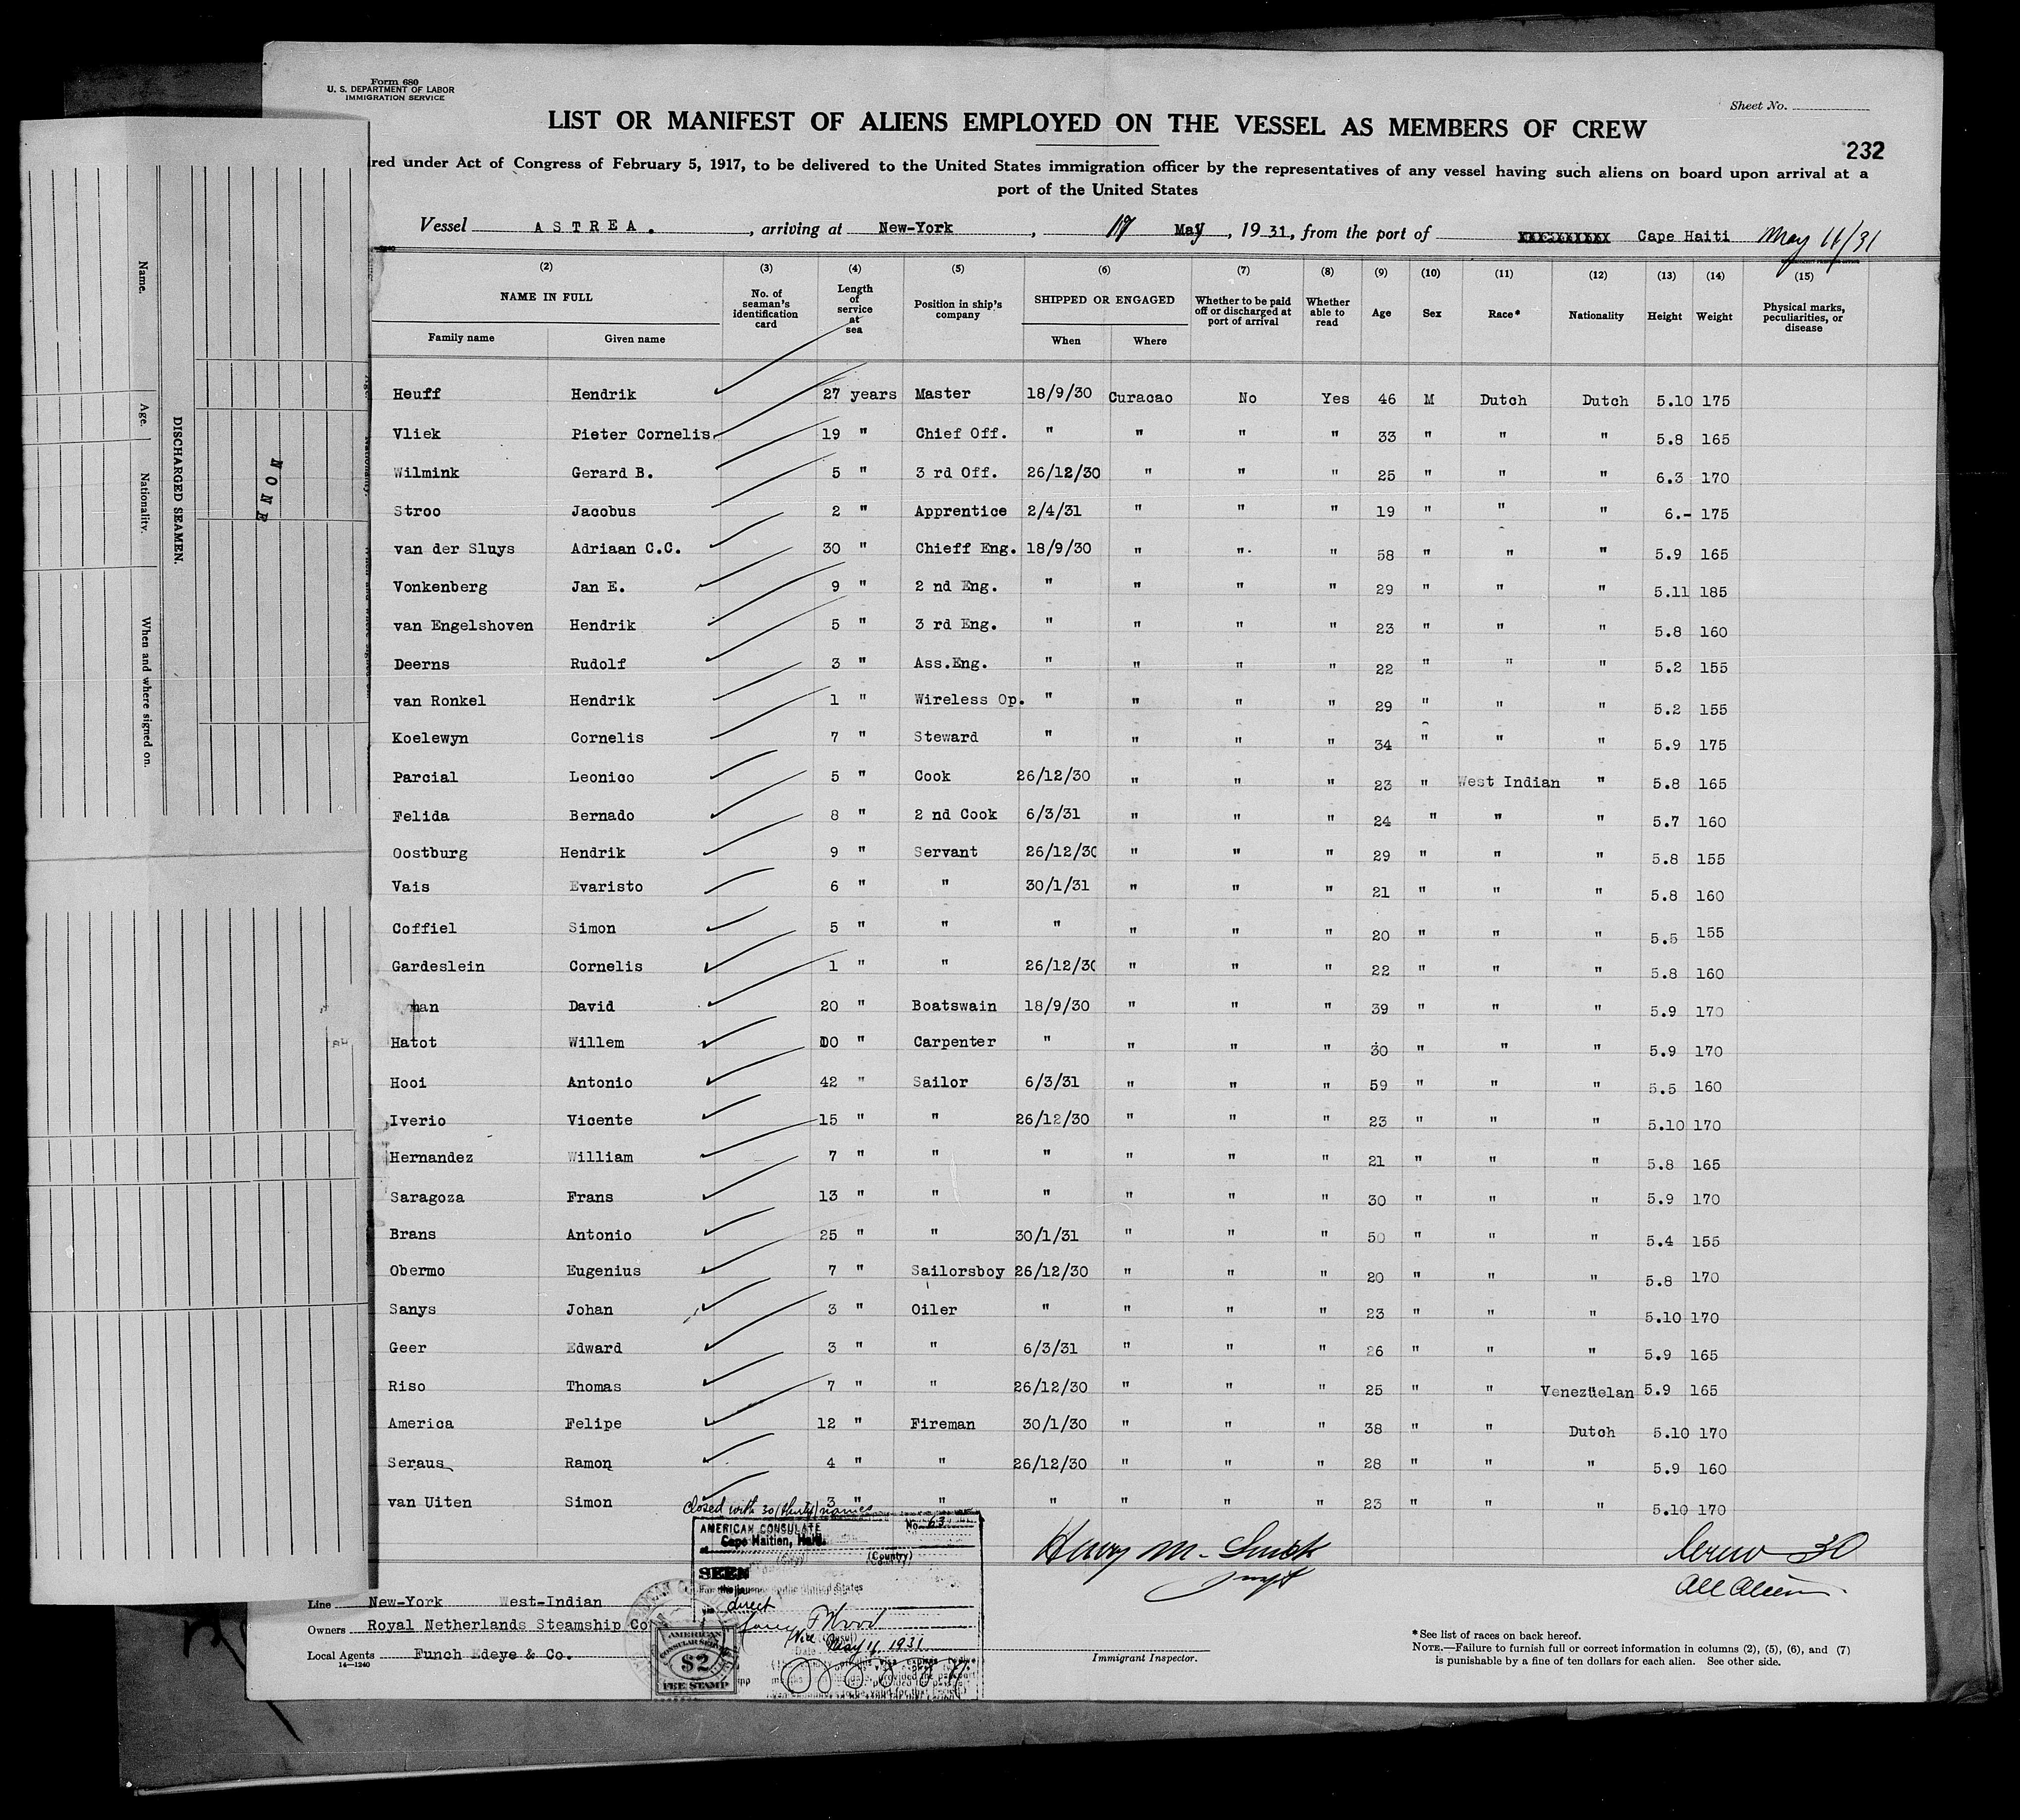 Form 680
U. S. DEPARTMENT OF LABOR
IMMIGRATION SERVICE
Sheet No.
LIST OR MANIFEST OF ALIENS EMPLOYED ON THE VESSEL AS MEMBERS OF CREW
232
red under Act of Congress of February 5, 1917, to be delivered to the United States immigration officer by the representatives of any vessel having such aliens on board upon arrival at a
port of the United States
Vessel ASTREA. , arriving at New-York , May , 19 31, from the port of Cape Haiti May 11/31
(2) (3) (4) (5) (6) (7) (8) (9) (10) (11) (12) (13) (14) (15)
NAME IN FULL
Family name Given name
No. of seaman's identification card
Length of service at sea
Position in ship's company
SHIPPED OR ENGAGED
When Where
Whether to be paid off or discharged at port of arrival
Whether able to read
Age
Sex
Race*
Nationality
Height
Weight
Physical marks, peculiarities, or disease
Heuff Hendrik 27 years Master 18/9/30 Curacao No Yes 46 M Dutch Dutch 5.10 175
Vliek Pieter Cornelis 19 " Chief Off. " " " " 33 " " " 5.8 165
Wilmink Gerard B. 5 " 3 rd Off. 26/12/30 " " " 25 " " " 6.3 170
Stroo Jacobus 2 " Apprentice 2/4/31 " " " 19 " " " 6.- 175
van der Sluys Adriaan C.C. 30 " Chieff Eng. 18/9/30 " " " 58 " " " 5.9 165
Vonkenberg Jan E. 9 " 2 nd Eng. " " " " 29 " " " 5.11 185
van Engelshoven Hendrik 5 " 3 rd Eng. " " " " 23 " " " 5.8 160
Deerns Rudolf 3 " Ass.Eng. " " " " 22 " " " 5.2 155
van Ronkel Hendrik 1 " Wireless Op. " " " " 29 " " " 5.2 155
Koelewyn Cornelis 7 " Steward " " " " 34 " " " 5.9 175
Parcial Leonico 5 " Cook 26/12/30 " " " 23 " West Indian " 5.8 165
Felida Bernado 8 " 2 nd Cook 6/3/31 " " " 24 " " " 5.7 160
Oostburg Hendrik 9 " Servant 26/12/30 " " " 29 " " " 5.8 155
Vais Evaristo 6 " " 30/1/31 " " " 21 " " " 5.8 160
Coffiel Simon 5 " " " " " " 20 " " " 5.5 155
Gardeslein Cornelis 1 " " 26/12/30 " " " 22 " " " 5.8 160
David 20 " Boatswain 18/9/30 " " " 39 " " " 5.9 170
Hatot Willem 10 " Carpenter " " " " 30 " " " 5.9 170
Hooi Antonio 42 " Sailor 6/3/31 " " " 59 " " " 5.5 160
Iverio Vicente 15 " " 26/12/30 " " " 23 " " " 5.10 170
Hernandez William 7 " " " " " " 21 " " " 5.8 165
Saragoza Frans 13 " " " " " " 30 " " " 5.9 170
Brans Antonio 25 " " 30/1/31 " " " 50 " " " 5.4 155
Obermo Eugenius 7 " Sailorsboy 26/12/30 " " " 20 " " " 5.8 170
Sanys Johan 3 " Oiler " " " " 23 " " " 5.10 170
Geer Edward 3 " " 6/3/31 " " " 26 " " " 5.9 165
Riso Thomas 7 " " 26/12/30 " " " 25 " " Venezuelan 5.9 165
America Felipe 12 " Fireman 30/1/30 " " " 38 " " Dutch 5.10 170
Seraus Ramon 4 " " 26/12/30 " " " 28 " " " 5.9 160
van Uiten Simon 3 " " " " " " 23 " " " 5.10 170
Closed with 30 (thirty) names
AMERICAN CONSULATE No. 63
Cape Haitien, Haiti.
(Country)
SEEN
direct
Vice
Date May 11, 1931
AMERICAN
CONSULAR SERVICE
$2
FEE STAMP
Henry M.
Crew 30
All Aliens
Line New-York West-Indian
Owners Royal Netherlands Steamship Co
Local Agents Funch Edeye & Co.
14—1240
Immigrant Inspector.
*See list of races on back hereof.
NOTE.—Failure to furnish full or correct information in columns (2), (5), (6), and (7)
is punishable by a fine of ten dollars for each alien. See other side.
DISCHARGED SEAMEN.
Name. Age. Nationality. When and where signed on.
NONE